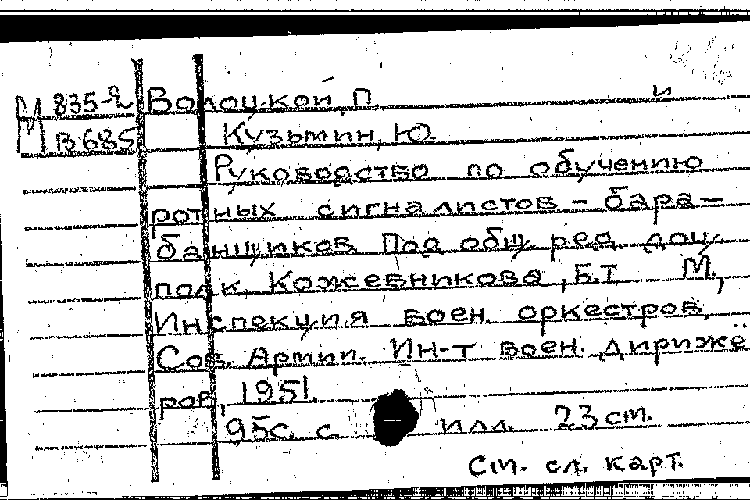 М 835-2 Волоцкой, П. и
М В685 Кузьмин, Ю.
Руководство по обучению
ротных сигналистов - бара=
банщиков. Под общ. ред. доц.
подк. Кожевникова, Б.Т. М.,
Инспекция воен. оркестров,
Сов. Армии. Ин-т воен. дирижё
ров, 1951.
95с. с. илл. 23 см.
См. сл. карт.